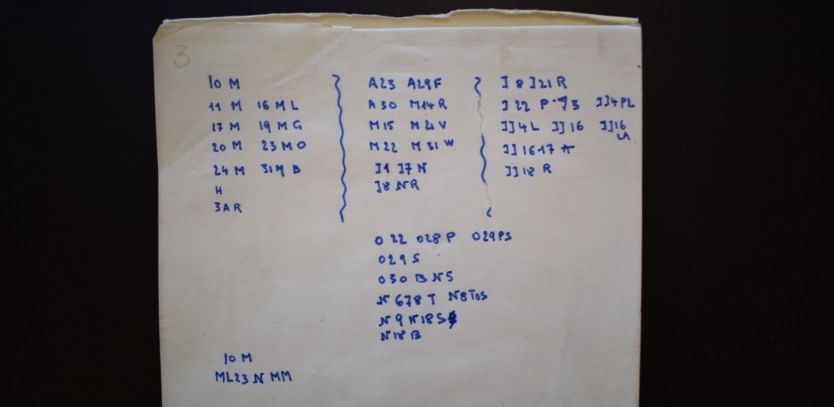 3
10 M
11 M 16 M L
17 M 19 M G
20 M 23 M O
24 M 31 M B
H
3 A R
A23 A29F
A 30 M14 R
M15 M 21 V
M22 M 31 W
I1 I7 N
I8 N R
I 8 I21 R
I 22 P
II4 PL
II4 L II 16 II16
LA
II 16 17 A
II 18 R
O 22 O28 P O29PS
O29 S
O30 B N 5
N 678 T N8TOS
N 9 N 18 S
N 18 B
10 M
ML23 N MM